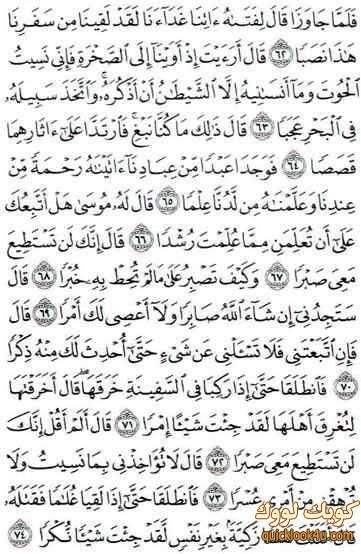 فَلَمَّا جَاوَزَا قَالَ لِفَتَىٰهُ ءَاتِنَا غَدَآءَنَا لَقَدْ لَقِينَا مِن سَفَرِنَا
هَٰذَا نَصَبًا ٦٢ قَالَ أَرَءَيْتَ إِذْ أَوَيْنَآ إِلَى ٱلصَّخْرَةِ فَإِنِّي نَسِيتُ
ٱلْحُوتَ وَمَآ أَنسَىٰنِيهُ إِلَّا ٱلشَّيْطَٰنُ أَنْ أَذْكُرَهُۥ وَٱتَّخَذَ سَبِيلَهُۥ
فِي ٱلْبَحْرِ عَجَبًا ٦٣ قَالَ ذَٰلِكَ مَا كُنَّا نَبْغِ فَٱرْتَدَّا عَلَىٰٓ ءَاثَارِهِمَا
قَصَصًا ٦٤ فَوَجَدَا عَبْدًا مِّنْ عِبَادِنَآ ءَاتَيْنَٰهُ رَحْمَةً مِّنْ
عِندِنَا وَعَلَّمْنَٰهُ مِن لَّدُنَّا عِلْمًا ٦٥ قَالَ لَهُۥ مُوسَىٰ هَلْ أَتَّبِعُكَ
عَلَىٰٓ أَن تُعَلِّمَنِ مِمَّا عُلِّمْتَ رُشْدًا ٦٦ قَالَ إِنَّكَ لَن تَسْتَطِيعَ
مَعِيَ صَبْرًا ٦٧ وَكَيْفَ تَصْبِرُ عَلَىٰ مَا لَمْ تُحِطْ بِهِۦ خُبْرًا ٦٨ قَالَ
سَتَجِدُنِيٓ إِن شَآءَ ٱللَّهُ صَابِرًا وَلَآ أَعْصِي لَكَ أَمْرًا ٦٩ قَالَ
فَإِنِ ٱتَّبَعْتَنِي فَلَا تَسْـَٔلْنِي عَن شَيْءٍ حَتَّىٰٓ أُحْدِثَ لَكَ مِنْهُ ذِكْرًا
٧٠ فَٱنطَلَقَا حَتَّىٰٓ إِذَا رَكِبَا فِي ٱلسَّفِينَةِ خَرَقَهَا قَالَ أَخَرَقْتَهَا
لِتُغْرِقَ أَهْلَهَا لَقَدْ جِئْتَ شَيْـًٔا إِمْرًا ٧١ قَالَ أَلَمْ أَقُلْ إِنَّكَ
لَن تَسْتَطِيعَ مَعِيَ صَبْرًا ٧٢ قَالَ لَا تُؤَاخِذْنِي بِمَا نَسِيتُ وَلَا
تُرْهِقْنِي مِنْ أَمْرِي عُسْرًا ٧٣ فَٱنطَلَقَا حَتَّىٰٓ إِذَا لَقِيَا غُلَٰمًا فَقَتَلَهُۥ
زَكِيَّةًۢ بِغَيْرِ نَفْسٍ لَّقَدْ جِئْتَ شَيْـًٔا نُّكْرًا ٧٤
كويك لووك
quicklook4u.com